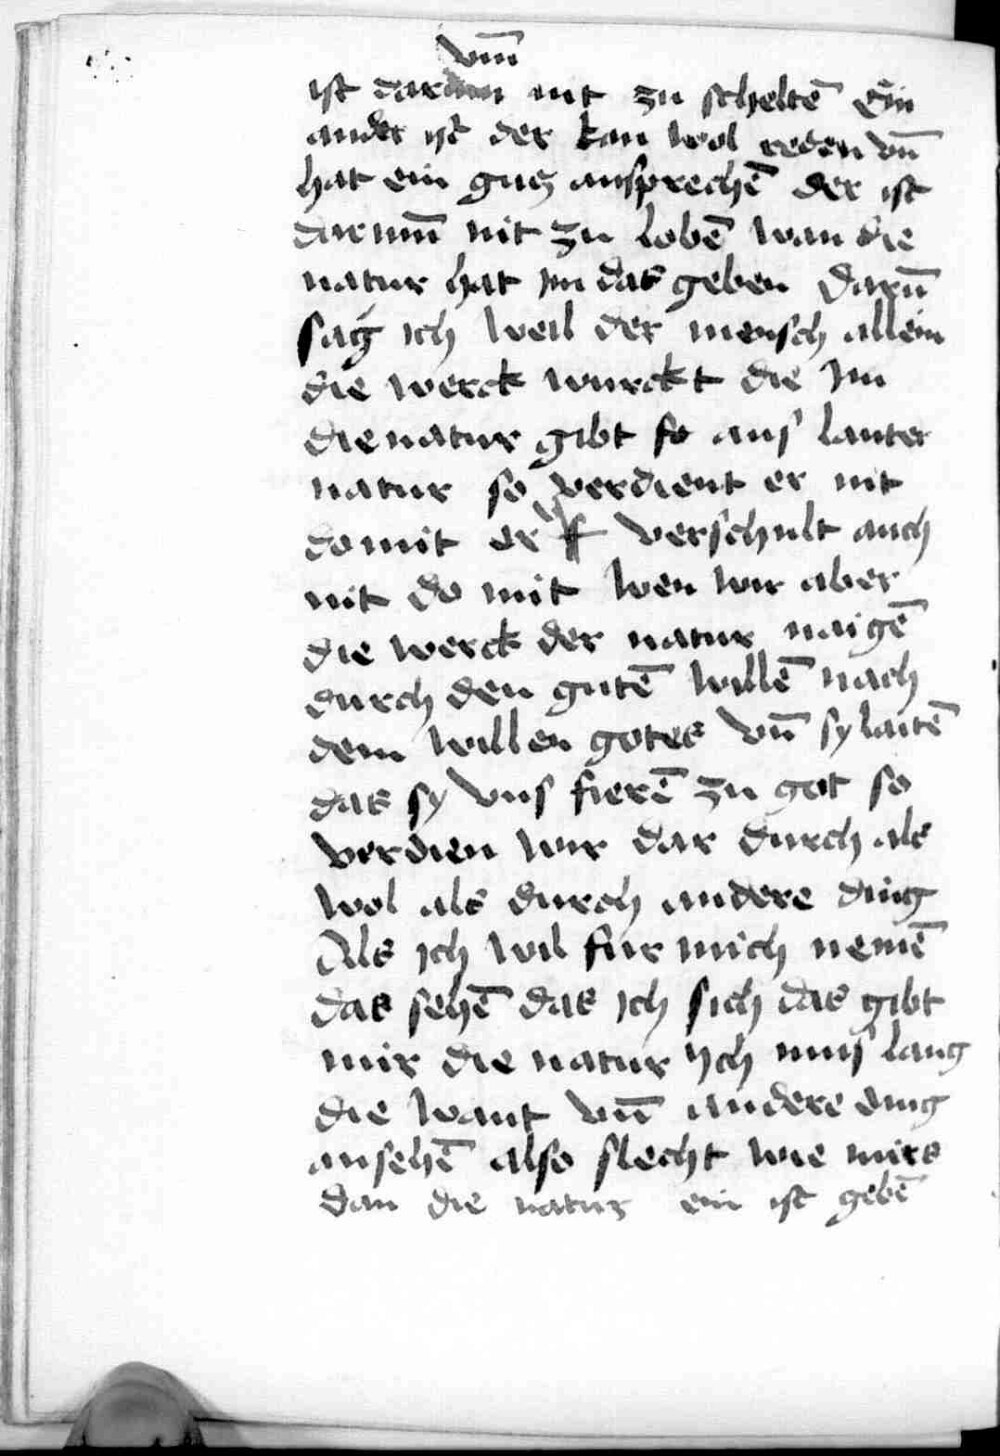 vm̄
ist dar nit zu scheltē Ein
ander ist der kan wol reden vn̄
hat ein gutz ansprechē der ist
darumm̄ nit zu lobē wan die
natur hat im das geben Darūn
sag ich weil der mensch allein
die werck wurckt die Im
die natur gibt so aus lauter
natur so verdient er nit
do mit er verschult auch
nit do mit wen wir aber
die werck der natur naigē
durch den gutē willē nach
dem willen gotes vn̄ sy laitē
das sy vns fierē zu got so
verdien wir dar durch als
wol als durch andere ding
Als ich wil fur mich nemē
das sehē das ich sich das gibt
mir die natur ych mus lang
die want vn̄ andere ding
ansehē also slecht wie mirs
dan die natur ein ist gebē